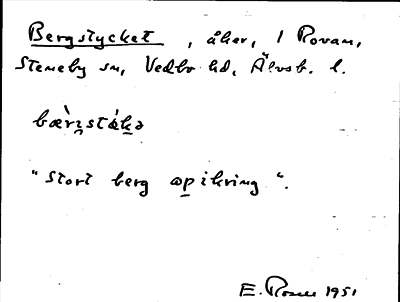 Bergstycket, åker, 1 Rovan,
Steneby sn, Vedbo hd, Älvsb. l.
bæ̀rɪstɛ́kə
"Stort berg apikring".
E. Rosen 1951